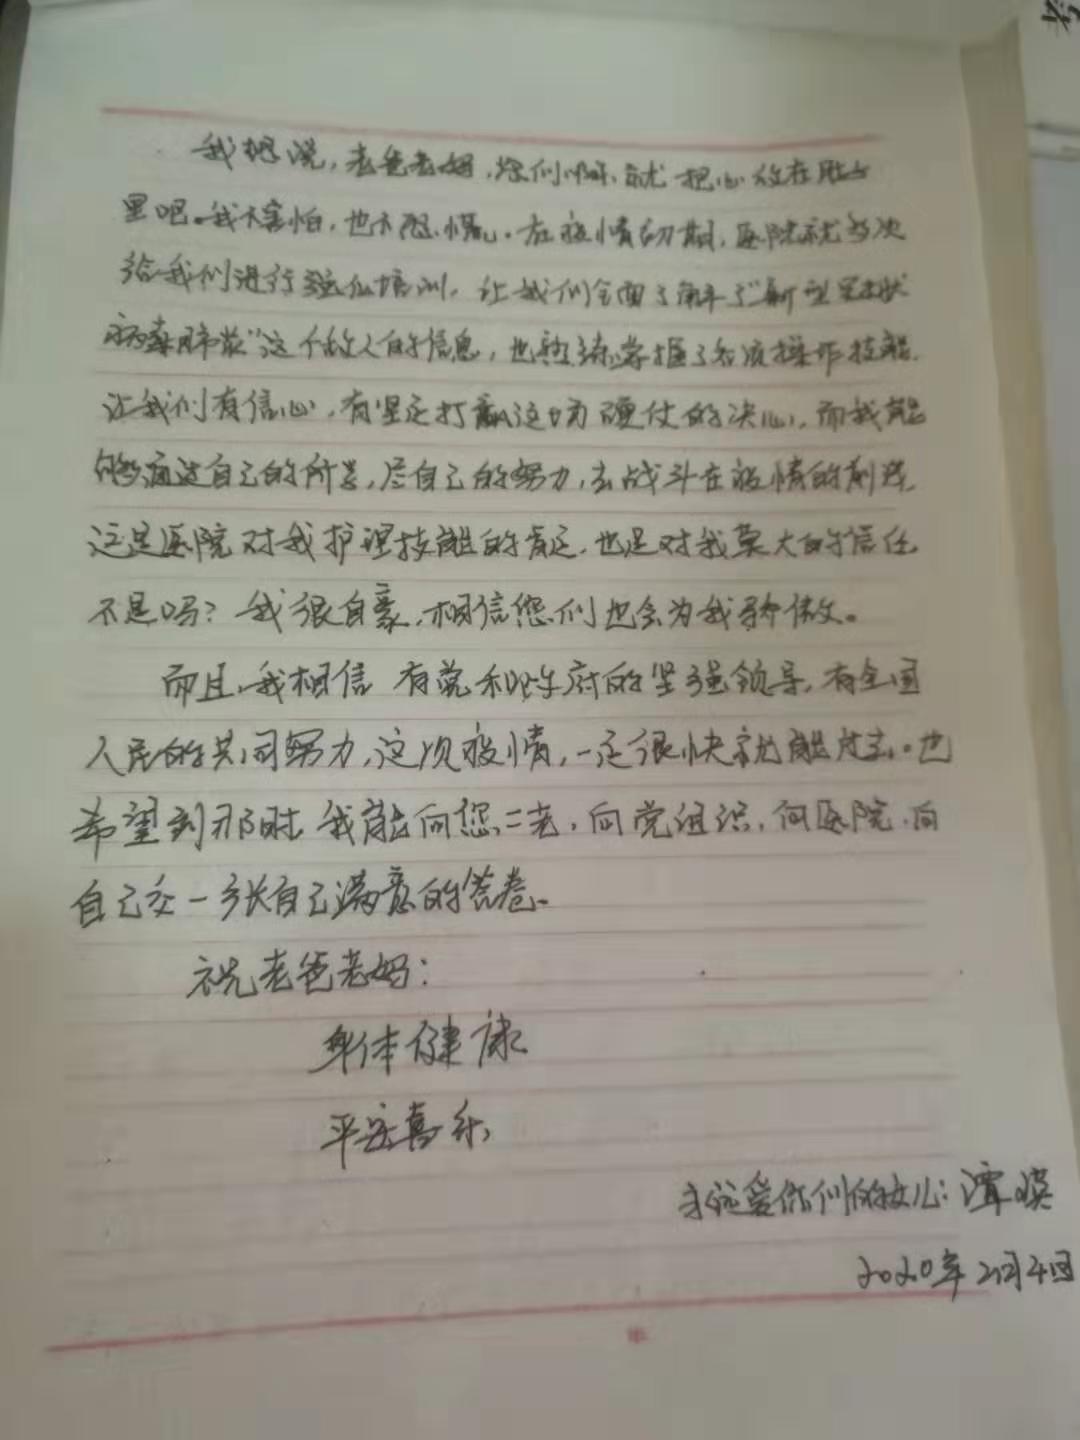 我想说，老爸老妈，你们啊，就把心放在肚子
里吧。我不害怕，也不恐慌。在疫情初期，医院就多次
给我们进行强化培训，让我们全面了解了“新型冠状
病毒肺炎”这个敌人的信息，也熟练掌握了各项操作技能，
让我们有信心，有坚定打赢这场硬仗的决心，而我能
够通过自己的所学，尽自己的努力，去战斗在疫情的前线，
这是医院对我护理技能的肯定，也是对我莫大的信任
不是吗？我很自豪，相信您们也会为我骄傲。
而且，我相信 有党和政府的坚强领导，有全国
人民的共同努力，这次疫情，一定很快就能过去。也
希望到那时 我能向您二老，向党组织，向医院，向
自己交一张自己满意的答卷。
祝老爸老妈：
身体健康
平安喜乐
永远爱你们的女儿：谭
2020年2月4日